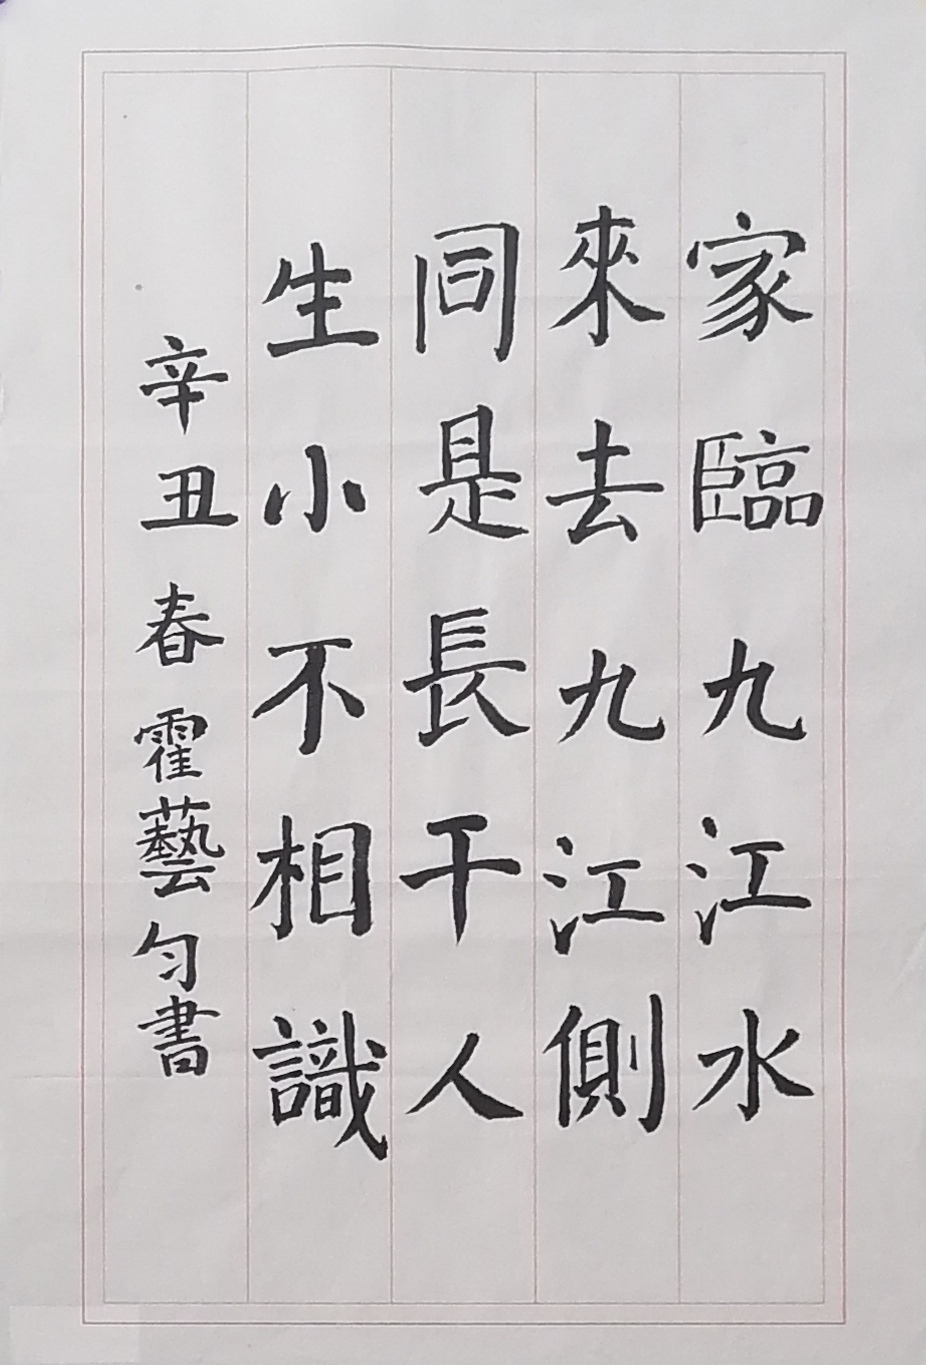 家臨九江水
來去九江側
同是長干人
生小不相識
辛丑春霍藝勻書